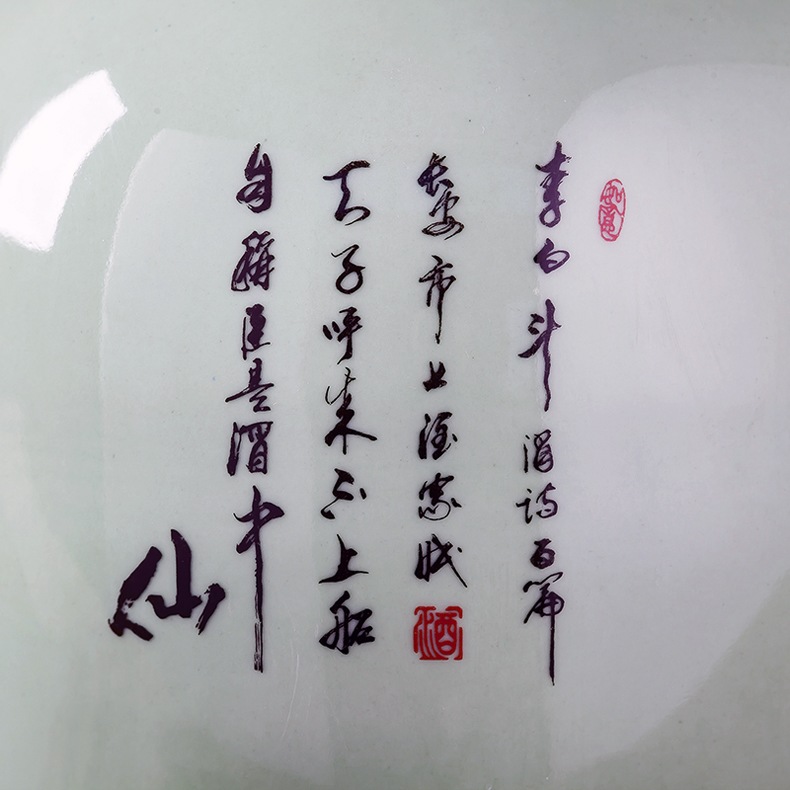 如意
李白斗酒诗百篇
长安市上酒家眠
酒
天子呼来不上船
自称臣是酒中
仙